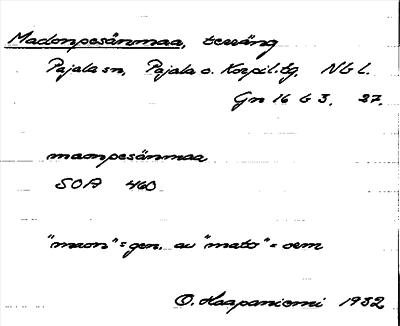 Madonpesänmaa, terräng
Pajala sn, Pajala o. Korpil. tg. Nb l.
Gn 16 b 3. 37.
maonpesänmaa
SOA 460
"maon" = gen. av "mato" = orm
O. Haapaniemi 1932